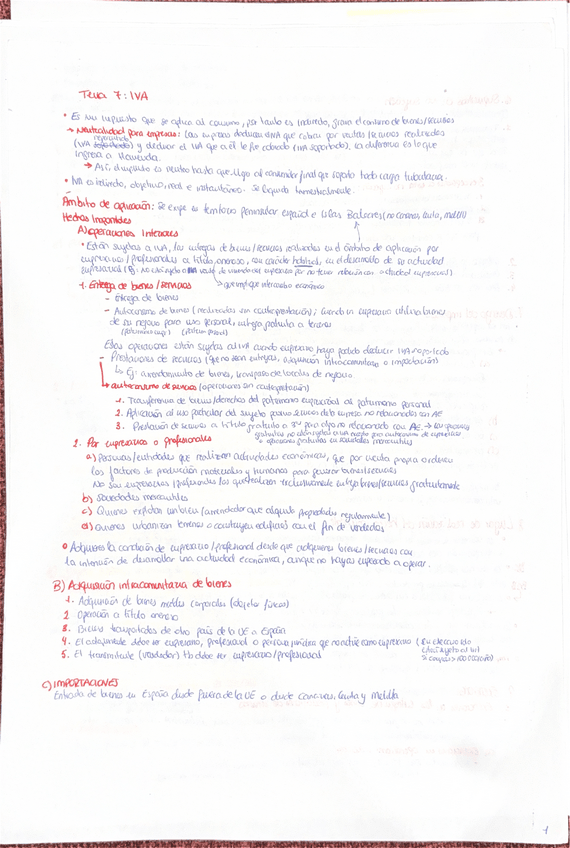 Tema 7: IVA
• Es un impuesto que se aplica al consumo, por tanto es indirecto, grava el consumo de bienes/servicios
→ Neutralidad para empresas: Las empresas deducen el IVA que cobran por ventas/servicios realizados
repercutido
(IVA soportado) y deducir el IVA que a él le fue cobrado (IVA soportado). La diferencia es lo que
ingresa a Hacienda.
→ Así, el impuesto es neutro hasta que llega al consumidor final que soporta toda carga tributaria.
• IVA es indirecto, objetivo, real e instantáneo. Se liquida trimestralmente.
Ámbito de aplicación: Se exige en territorio peninsular español e Islas Baleares (no canarias, ceuta, melilla)
Hechos Imponibles
A) operaciones Interiores
• Están sujetas a IVA, las entregas de bienes/servicios realizadas en el ámbito de aplicación por
empresarios/profesionales a título oneroso, con carácter habitual, en el desarrollo de su actividad
empresarial (Ej: no obligado a IVA venta de vivienda del empresario por no tener relación con actividad empresarial)
1. Entrega de bienes/servicios
→ que implique intercambio económico
- Entrega de bienes
- Autoconsumo de bienes (realizadas sin contraprestación); cuando un empresario utiliza bienes
de su negocio para uso personal, entrega gratuita a terceros
Estas operaciones están sujetas al IVA cuando empresario haya podido deducir IVA soportado
- Prestaciones de servicios (que no sean entregas, adquisición intracomunitaria o importación)
↳ Ej: arrendamiento de bienes, traspaso de locales de negocio
↳ autoconsumo de servicios (operaciones sin contraprestación)
1. Transferencia de bienes/derechos del patrimonio empresarial al patrimonio personal
2. Aplicación al uso particular del sujeto pasivo servicios de la empresa no relacionados con AE
3. Prestación de servicios a título gratuito a 3º para algo no relacionado con AE. →
2. Por empresarios o profesionales
a) Personas/entidades que realizan actividades económicas, que por cuenta propia ordenen
los factores de producción materiales y humanos para generar bienes/servicios
No son empresarios/profesionales los que realizan exclusivamente entrega bienes/servicios gratuitamente
b) Sociedades mercantiles
c) Quienes exploten un bien (arrendador que alquila propiedades regularmente)
d) Quienes urbanizan terrenos o construyen edificios con el fin de venderlos
• Adquieres la condición de empresario/profesional desde que adquieres bienes/servicios con
la intención de desarrollar una actividad económica, aunque no hayas empezado a operar.
B) Adquisición intracomunitaria de bienes
1. Adquisición de bienes muebles corporales (objetos físicos)
2. Operación a título oneroso
3. Bienes transportados de otro país de la UE a España
4. El adquirente debe ser empresario, profesional o persona jurídica que no actúe como empresario
5. El transmitente (vendedor) tb debe ser empresario/profesional
C) IMPORTACIONES
Entrada de bienes en España desde fuera de la UE o desde Canarias, Ceuta y Melilla
1